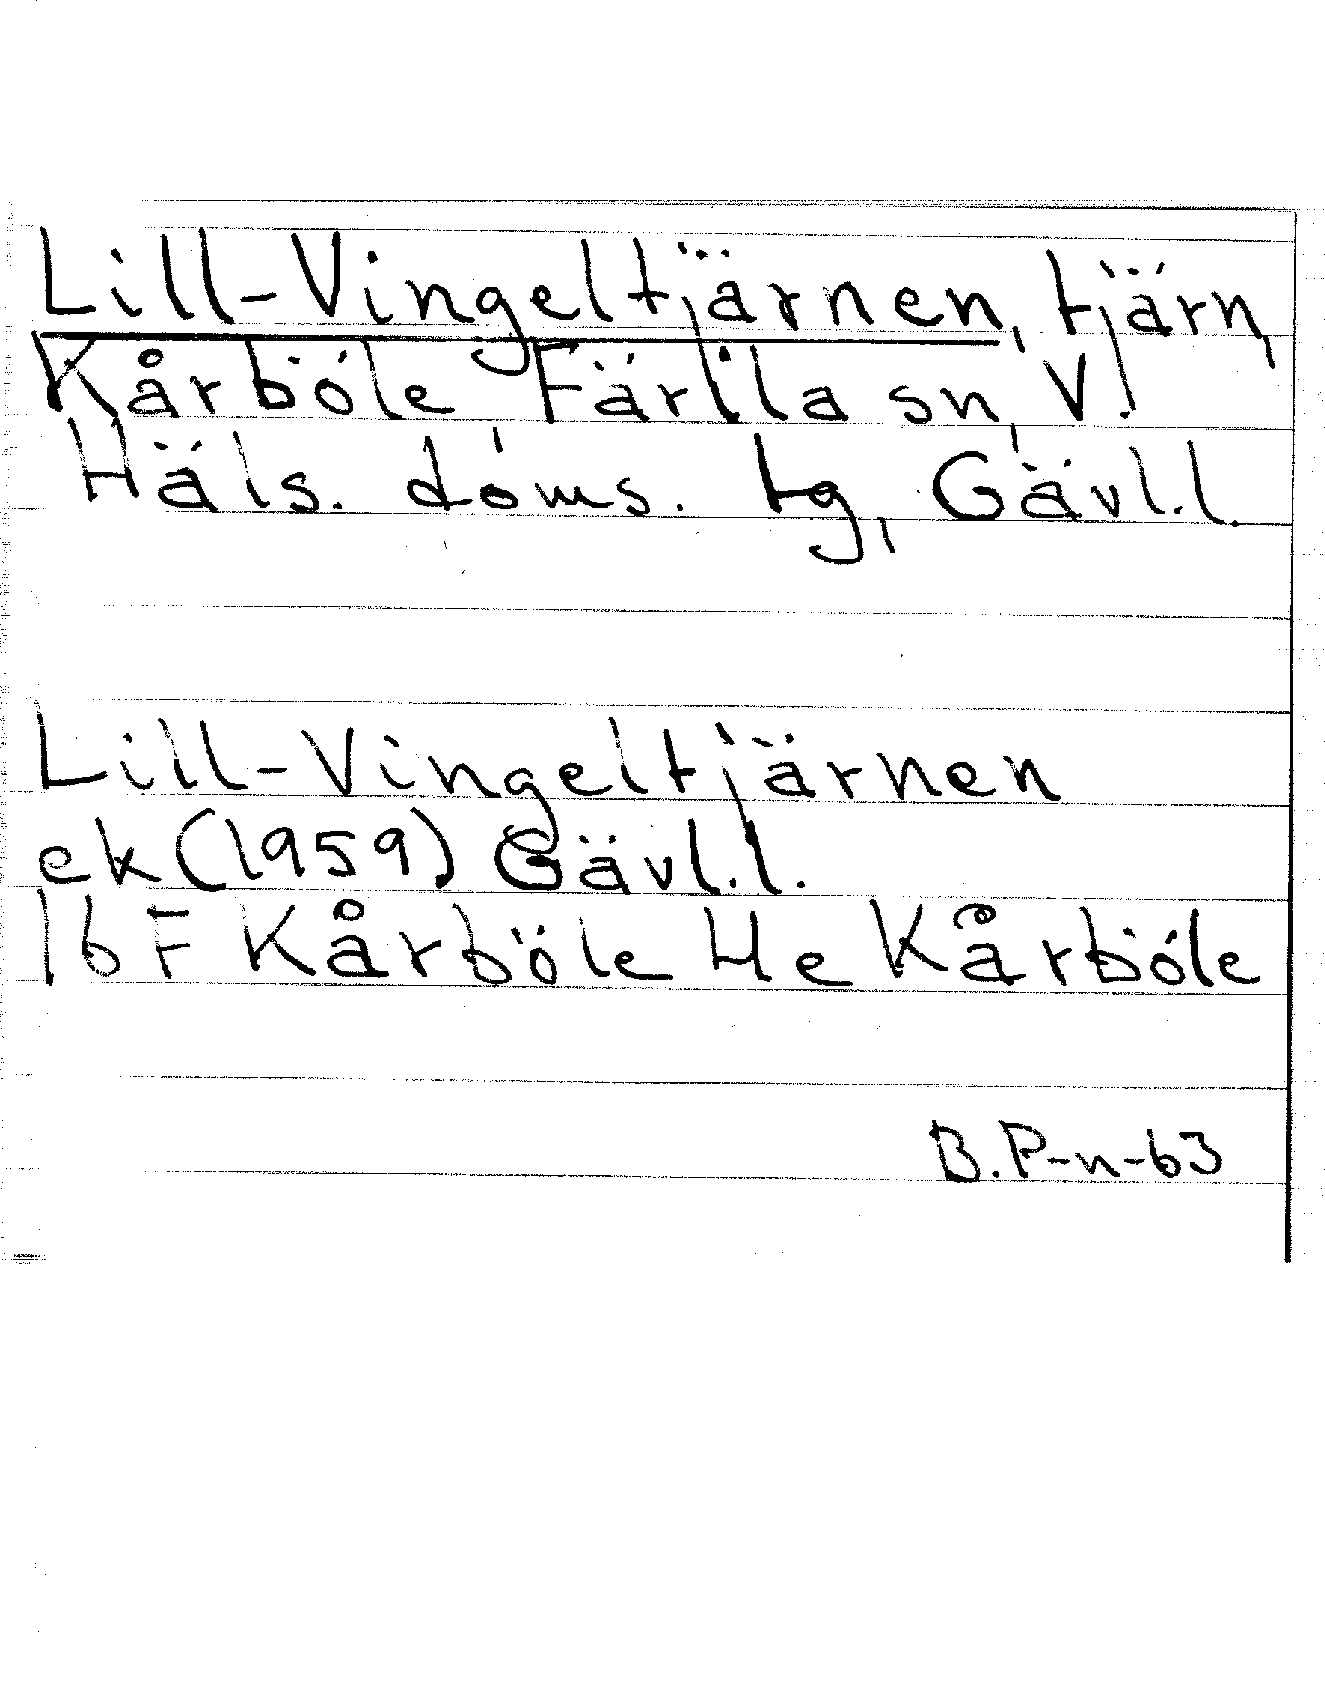 Lill-Vingeltjärnen, tjärn,
Kårböle Färila sn, V.
Häls. doms. tg, Gävl.l.
Lill-Vingeltjärnen
ek (1959) Gävl.l.
16F Kårböle He Kårböle
B.P-n-63